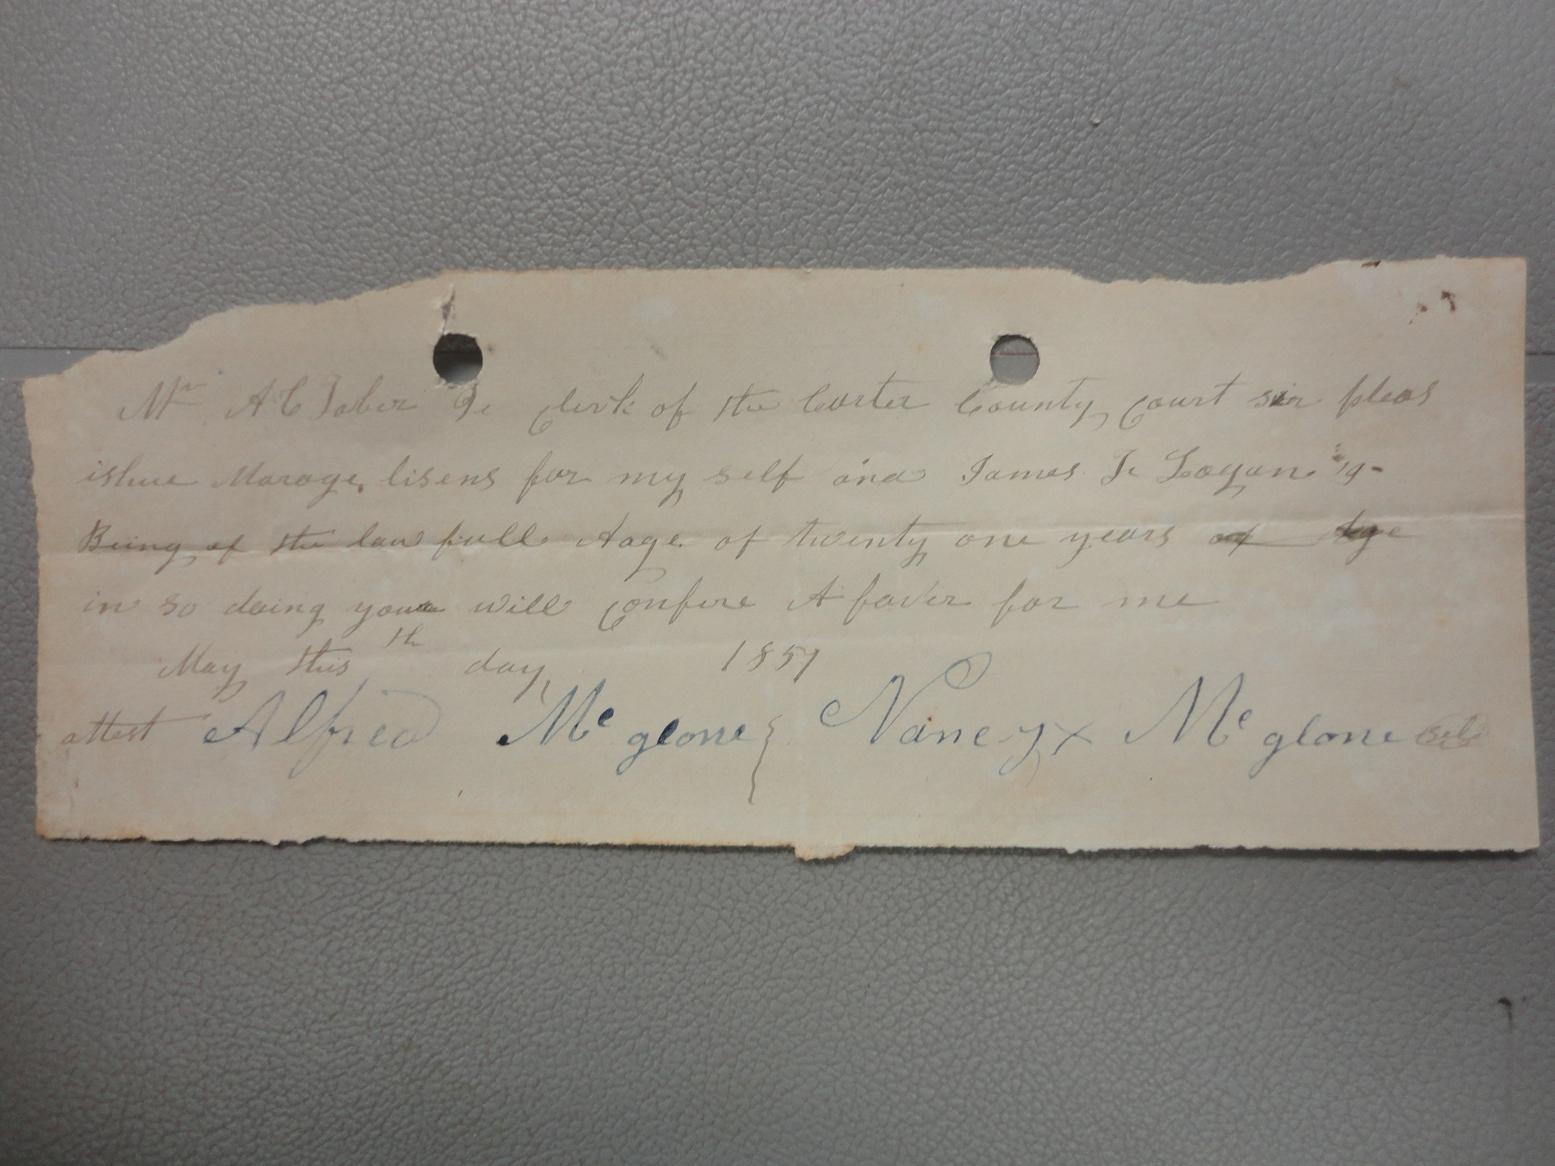 Mr A C Tober Je clerk of the Carter County court sir pleas
ishue Marage lisens for my self and James Te Logan
Being of the lawfull Aage of twenty one years of Age
in so doing you will confere A faver for me
May this th day 1851
attest Alfred Mc glone } Nancy x Mc glone